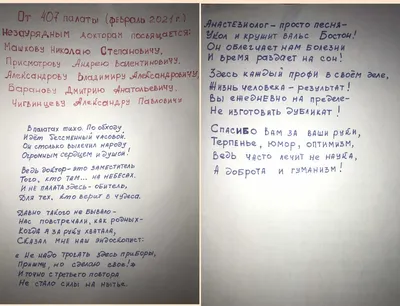 От 407 палаты (февраль 2021г.)
Незаурядным докторам посвящается:
Машкову Николаю Степановичу,
Присмотрову Андрею Валентиновичу,
Александрову Владимиру Александровичу,
Баранову Дмитрию Анатольевичу,
Чигвинцеву Александру Павловичу
В палатах тихо. По обходу
Идёт бессменный часовой.
Он столько вылечил народу
Огромным сердцем и душой!
Ведь доктор – это заместитель
Того, кто там... на небесах.
И не палата здесь – обитель,
Для тех, кто верит в чудеса.
Давно такого не бывало –
Нас повстречали, как родных –
Когда я за руку хватала,
Сказал мне наш эндоскопист:
« Не надо трогать здесь приборы,
Приляг, но сделаю своё!»
И точно с третьего повтора
Не стало силы на нытьё.
Анастезиолог – просто песня –
Укол и крушит вальс Бостон!
Он облегчает нам болезни
И время раздаёт на сон!
Здесь каждый профи в своём деле,
Жизнь человека – результат!
Вы ежедневно на пределе –
Не изготовить дубликат!
Спасибо Вам за ваши руки,
Терпенье, юмор, оптимизм,
Ведь часто лечит не наука,
А доброта и гуманизм!